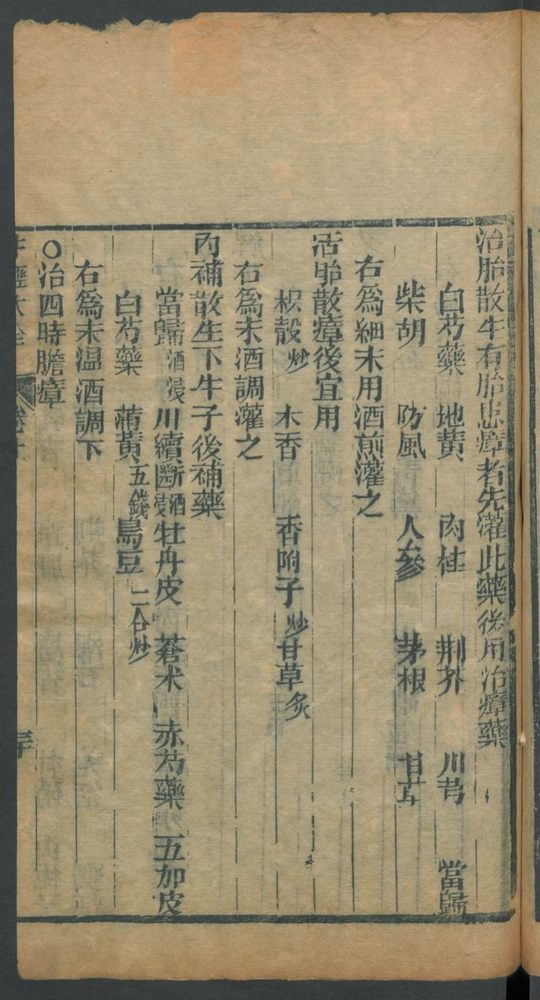 治胎散牛有胎患瘴者先灌此藥後用治瘴藥
白芍藥 地黃 肉桂 荆芥 川芎 當歸
柴胡 防風 人參 茅根 甘草
右爲細末用酒煎灌之
活胎散瘴後宜用
枳殼炒 木香 香附子炒 甘草炙
右爲末酒調灌之
內補散生下牛子後補藥
當歸酒浸 川續斷酒浸 牡丹皮 蒼术 赤芍藥 五加皮
白芍藥 蒲黃五錢 烏豆二合炒
右爲末温酒調下
〇治四時膽瘴
牛經大全 卷下